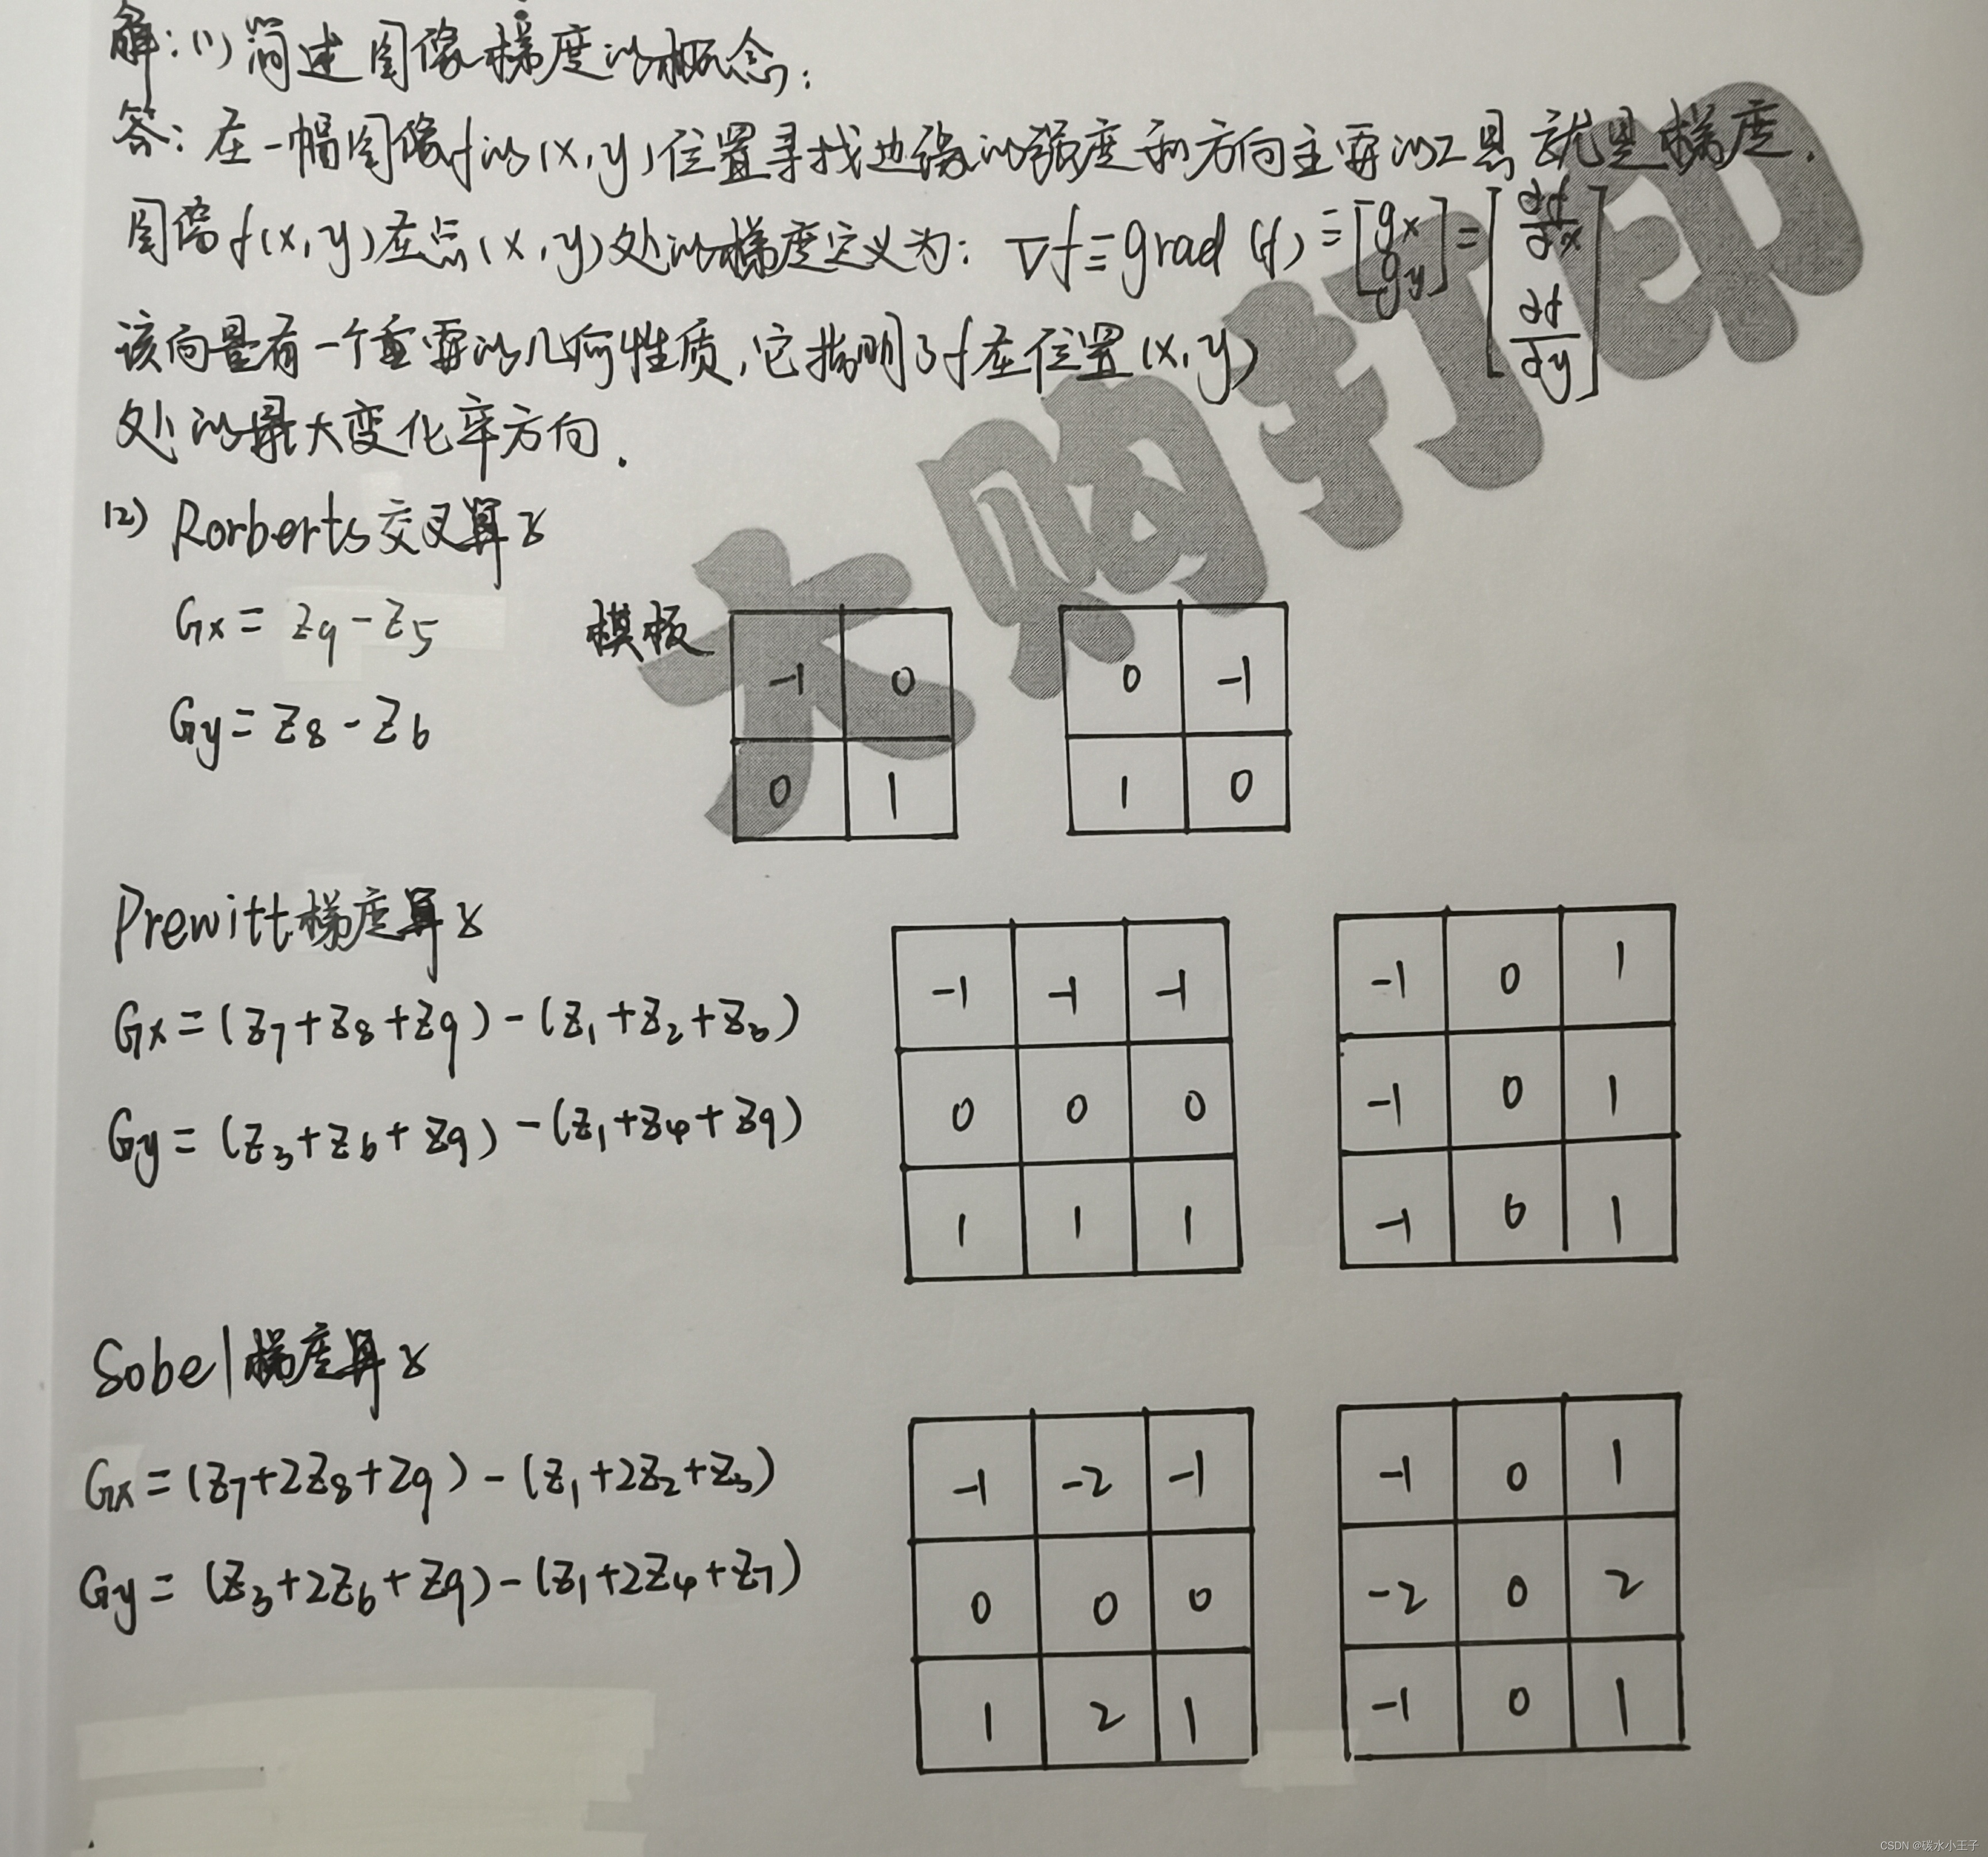 解:(1)简述图像梯度的概念:
答:在一幅图像f的(x,y)位置寻找边缘的强度和方向主要的工具就是梯度.
图像f(x,y)在点(x,y)处的梯度定义为: ∇f≡grad(f)≡[gx gy]=[∂f/∂x ∂f/∂y]
该向量有一个重要的几何性质,它指明了f在位置(x,y)
处的最大变化率方向.
(2) Rorberts交叉算子
Gx=z9-z5
模板
-1 0
0 1
0 -1
1 0
Gy=z8-z6
Prewitt梯度算子
Gx=(z7+z8+z9)-(z1+z2+z3)
Gy=(z3+z6+z9)-(z1+z4+z9)
-1 -1 -1
0 0 0
1 1 1
-1 0 1
-1 0 1
-1 0 1
Sobel梯度算子
Gx=(z7+2z8+z9)-(z1+2z2+z3)
Gy=(z3+2z6+z9)-(z1+2z4+z7)
-1 -2 -1
0 0 0
1 2 1
-1 0 1
-2 0 2
-1 0 1
购打印
CSDN @碳水小王子